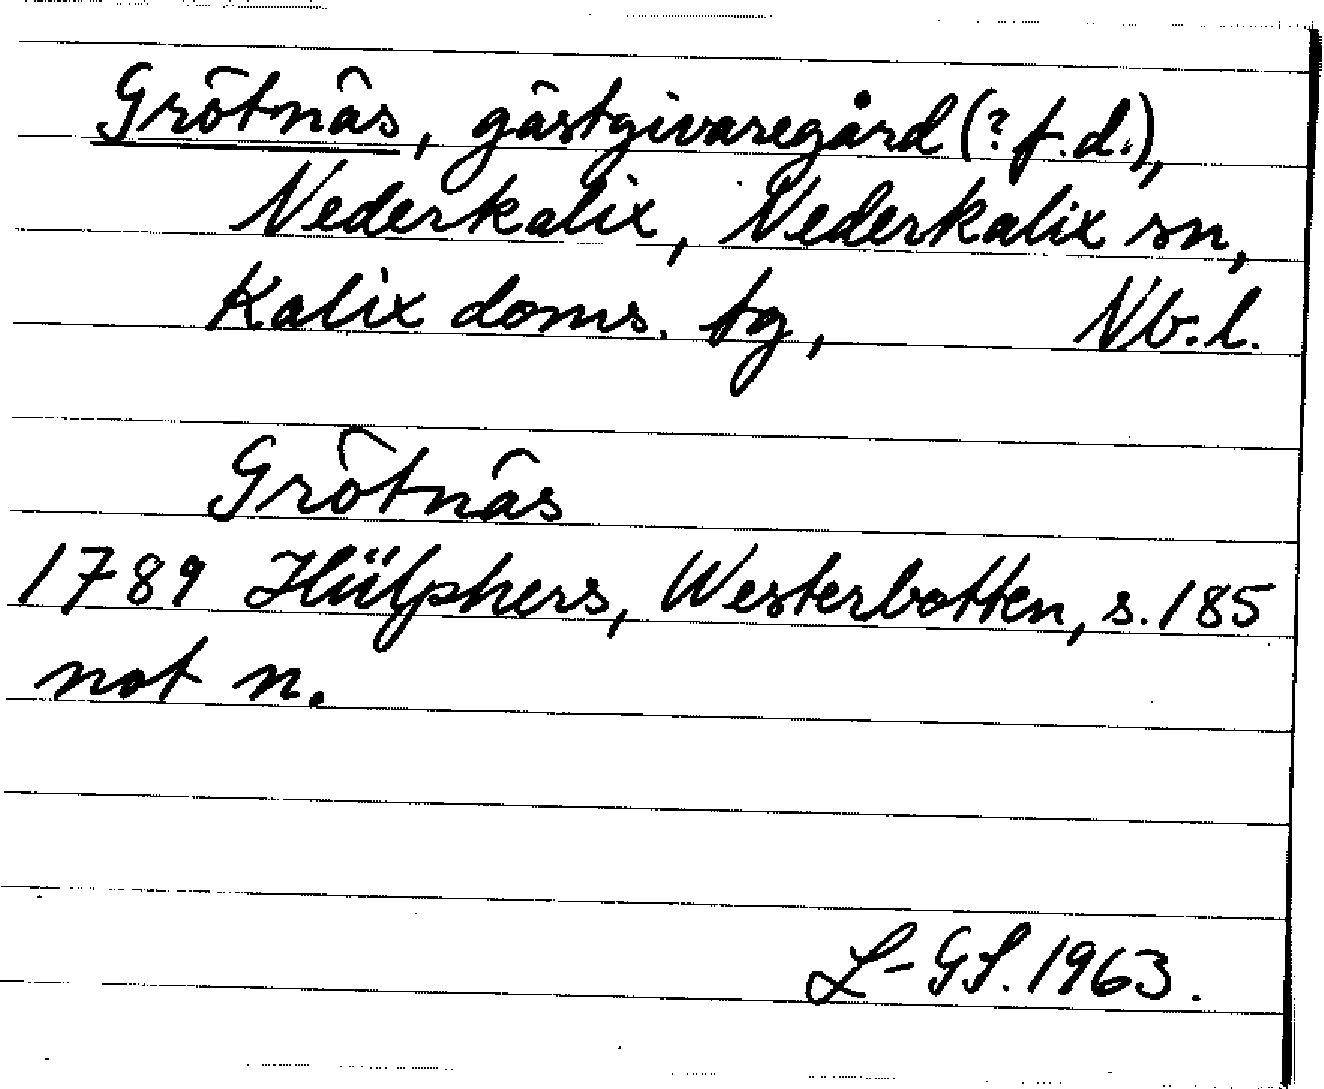 Grötnäs, gästgivaregård (? f.d.),
Nederkalix, Nederkalix sn,
Kalix doms. tg, Nb.l.
Grötnäs
1789 Hülphers, Westerbotten, s. 185
not n.
L-GS. 1963.